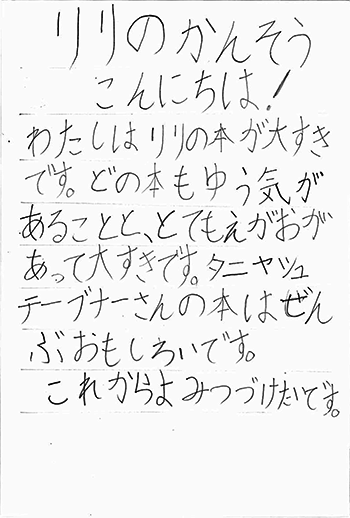 リリのかんそう
こんにちは!
わたしはリリの本が大すき
です。どの本もゆう気が
あることと、とてもえがおが
あって大すきです。タニヤシュ
テーブナーさんの本はぜん
ぶおもしろいです。
これからよみつづけたいです。